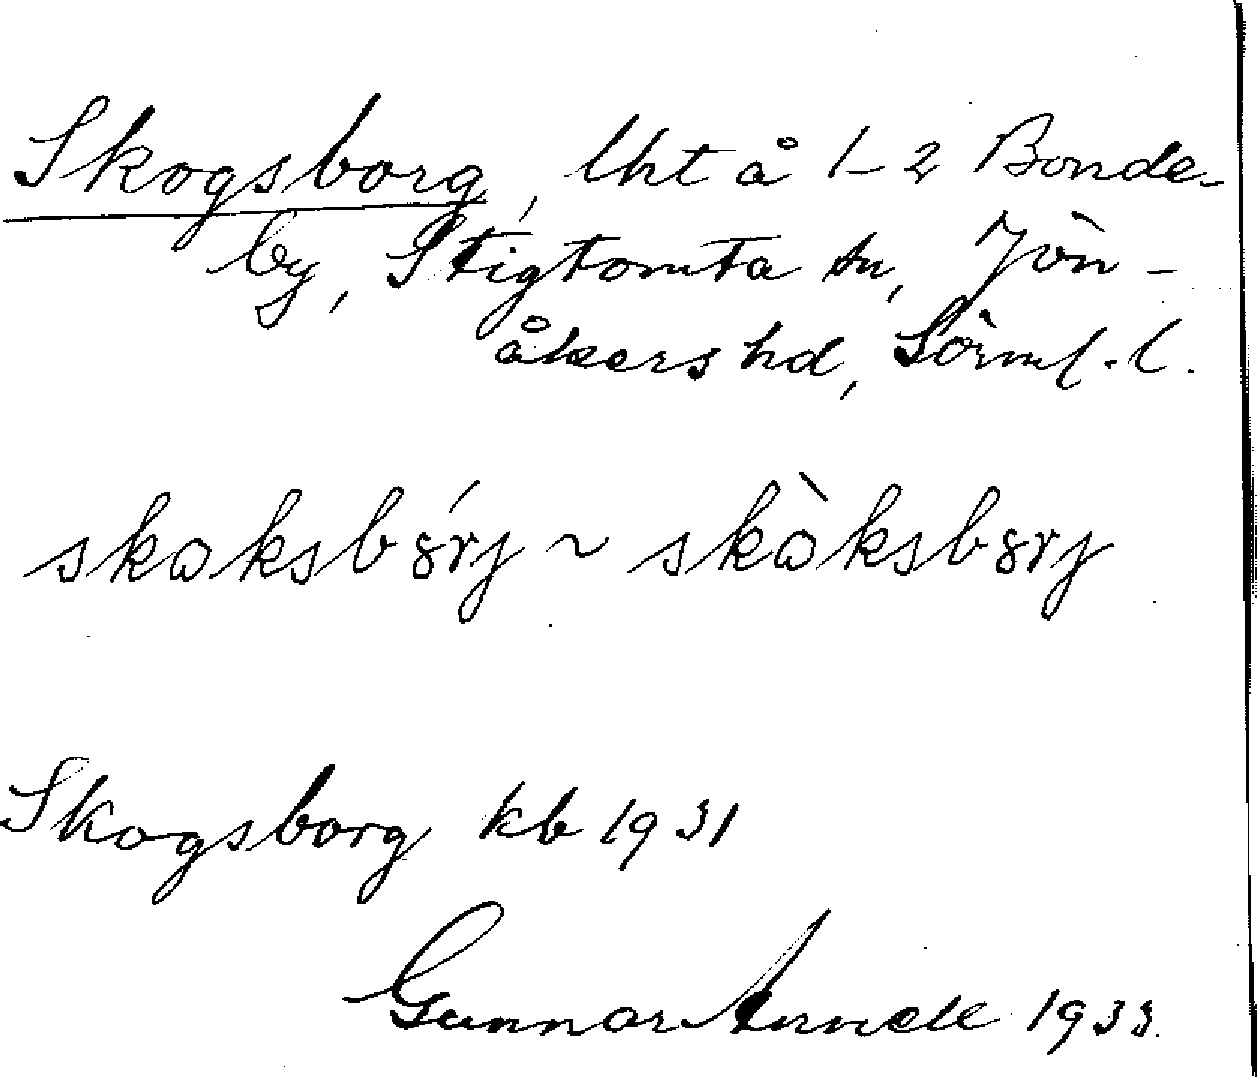 Skogsborg, lht å 1-2 Bonde-
by, Stigtomta sn, Jön-
åkers hd, Sörml. l.
skoksbórj ~ skòksborj
Skogsborg kb 1931
Gunnar 1933.